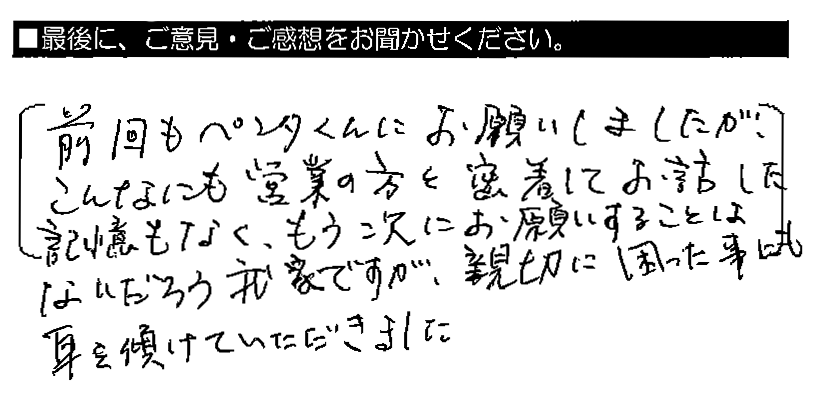 ■最後に、ご意見・ご感想をお聞かせください。
前回もペンタくんにお願いしましたが、
こんなにも営業の方と密着してお話した
記憶もなく、もう次にお願いすることは
ないだろう我家ですが、親切に困った事にも
耳を傾けていただきました